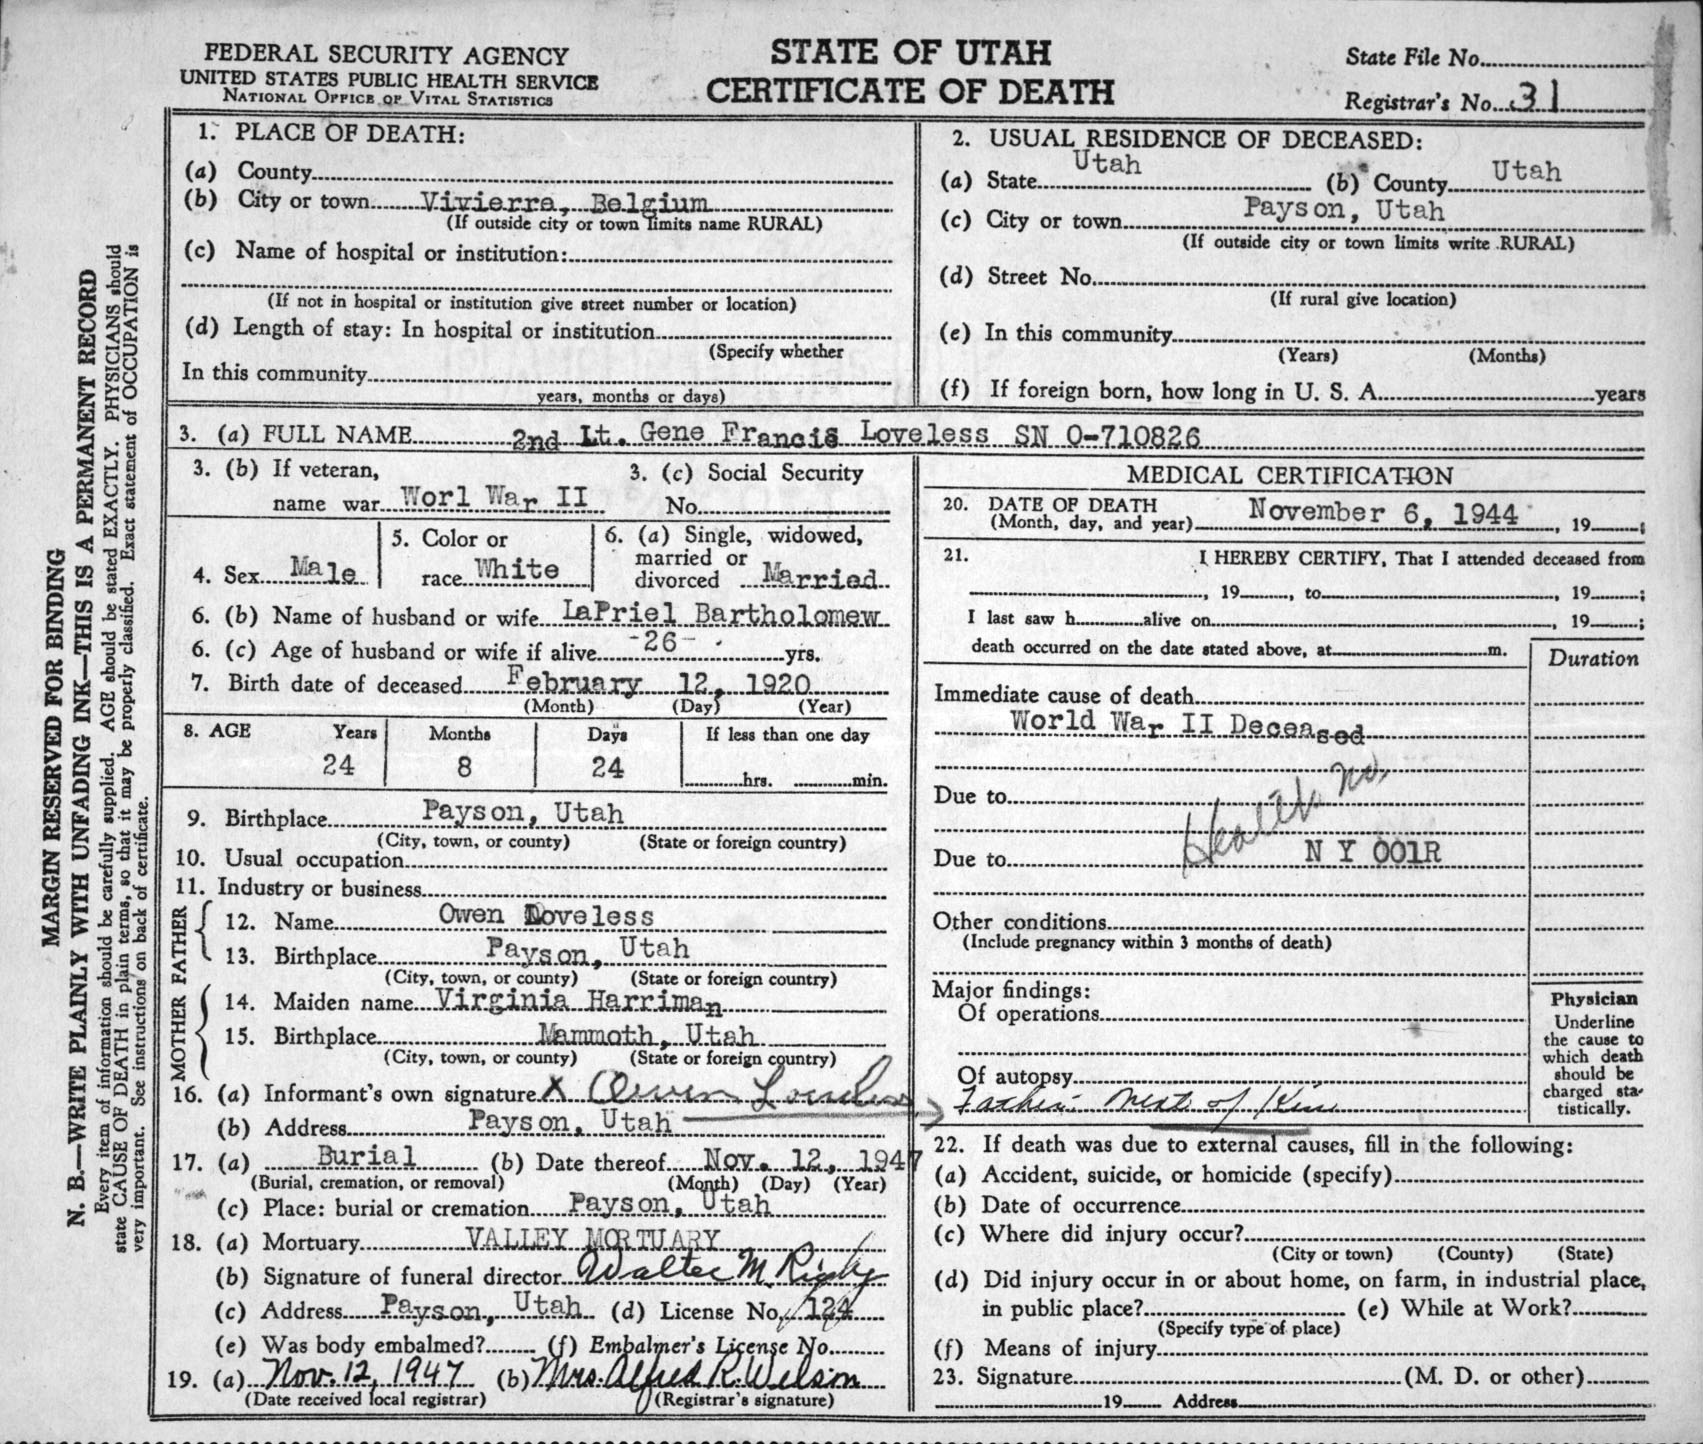 FEDERAL SECURITY AGENCY
UNITED STATES PUBLIC HEALTH SERVICE
NATIONAL OFFICE OF VITAL STATISTICS
STATE OF UTAH
CERTIFICATE OF DEATH
State File No.
Registrar's No. 31
MARGIN RESERVED FOR BINDING
N. B.—WRITE PLAINLY WITH UNFADING INK—THIS IS A PERMANENT RECORD
Every item of information should be carefully supplied. AGE should be stated EXACTLY. PHYSICIANS should
state CAUSE OF DEATH in plain terms, so that it may be properly classified. Exact statement of OCCUPATION is
very important. See instructions on back of certificate.
1. PLACE OF DEATH:
(a) County
(b) City or town Vivierra, Belgium
(If outside city or town limits name RURAL)
(c) Name of hospital or institution:
(If not in hospital or institution give street number or location)
(d) Length of stay: In hospital or institution
(Specify whether
In this community
years, months or days)
2. USUAL RESIDENCE OF DECEASED:
(a) State Utah (b) County Utah
(c) City or town Payson, Utah
(If outside city or town limits write RURAL)
(d) Street No.
(If rural give location)
(e) In this community
(Years) (Months)
(f) If foreign born, how long in U. S. A. years
3. (a) FULL NAME 2nd Lt. Gene Francis Loveless SN O-710826
3. (b) If veteran,
name war Worl War II
3. (c) Social Security
No.
4. Sex Male
5. Color or
race White
6. (a) Single, widowed,
married or
divorced Married
6. (b) Name of husband or wife LaPriel Bartholomew
6. (c) Age of husband or wife if alive -26- yrs.
7. Birth date of deceased February 12, 1920
(Month) (Day) (Year)
8. AGE Years Months Days If less than one day
24 8 24 hrs. min.
9. Birthplace Payson, Utah
(City, town, or county) (State or foreign country)
10. Usual occupation
11. Industry or business
FATHER
12. Name Owen Loveless
13. Birthplace Payson, Utah
(City, town, or county) (State or foreign country)
MOTHER
14. Maiden name Virginia Harriman
15. Birthplace Mammoth, Utah
(City, town, or county) (State or foreign country)
16. (a) Informant's own signature X Owen Loveless
(b) Address Payson, Utah
17. (a) Burial (b) Date thereof Nov. 12, 1947
(Burial, cremation, or removal) (Month) (Day) (Year)
(c) Place: burial or cremation Payson, Utah
18. (a) Mortuary VALLEY MORTUARY
(b) Signature of funeral director Walter M. Rigby
(c) Address Payson, Utah (d) License No. 124
(e) Was body embalmed? (f) Embalmer's License No.
19. (a) Nov. 12, 1947 (b) Mrs. Alfred R. Wilson
(Date received local registrar) (Registrar's signature)
MEDICAL CERTIFICATION
20. DATE OF DEATH
(Month, day, and year) November 6, 1944, 19 ;
21. I HEREBY CERTIFY, That I attended deceased from
, 19 , to , 19 ;
I last saw h alive on , 19 ;
death occurred on the date stated above, at m.
Duration
Immediate cause of death
World War II Deceased
Due to
Health No.
Due to N Y 001R
Other conditions
(Include pregnancy within 3 months of death)
Major findings:
Of operations
Of autopsy
Father Next of Kin
Physician
Underline
the cause to
which death
should be
charged sta-
tistically.
22. If death was due to external causes, fill in the following:
(a) Accident, suicide, or homicide (specify)
(b) Date of occurrence
(c) Where did injury occur?
(City or town) (County) (State)
(d) Did injury occur in or about home, on farm, in industrial place,
in public place? (e) While at Work?
(Specify type of place)
(f) Means of injury
23. Signature (M. D. or other)
19 Address